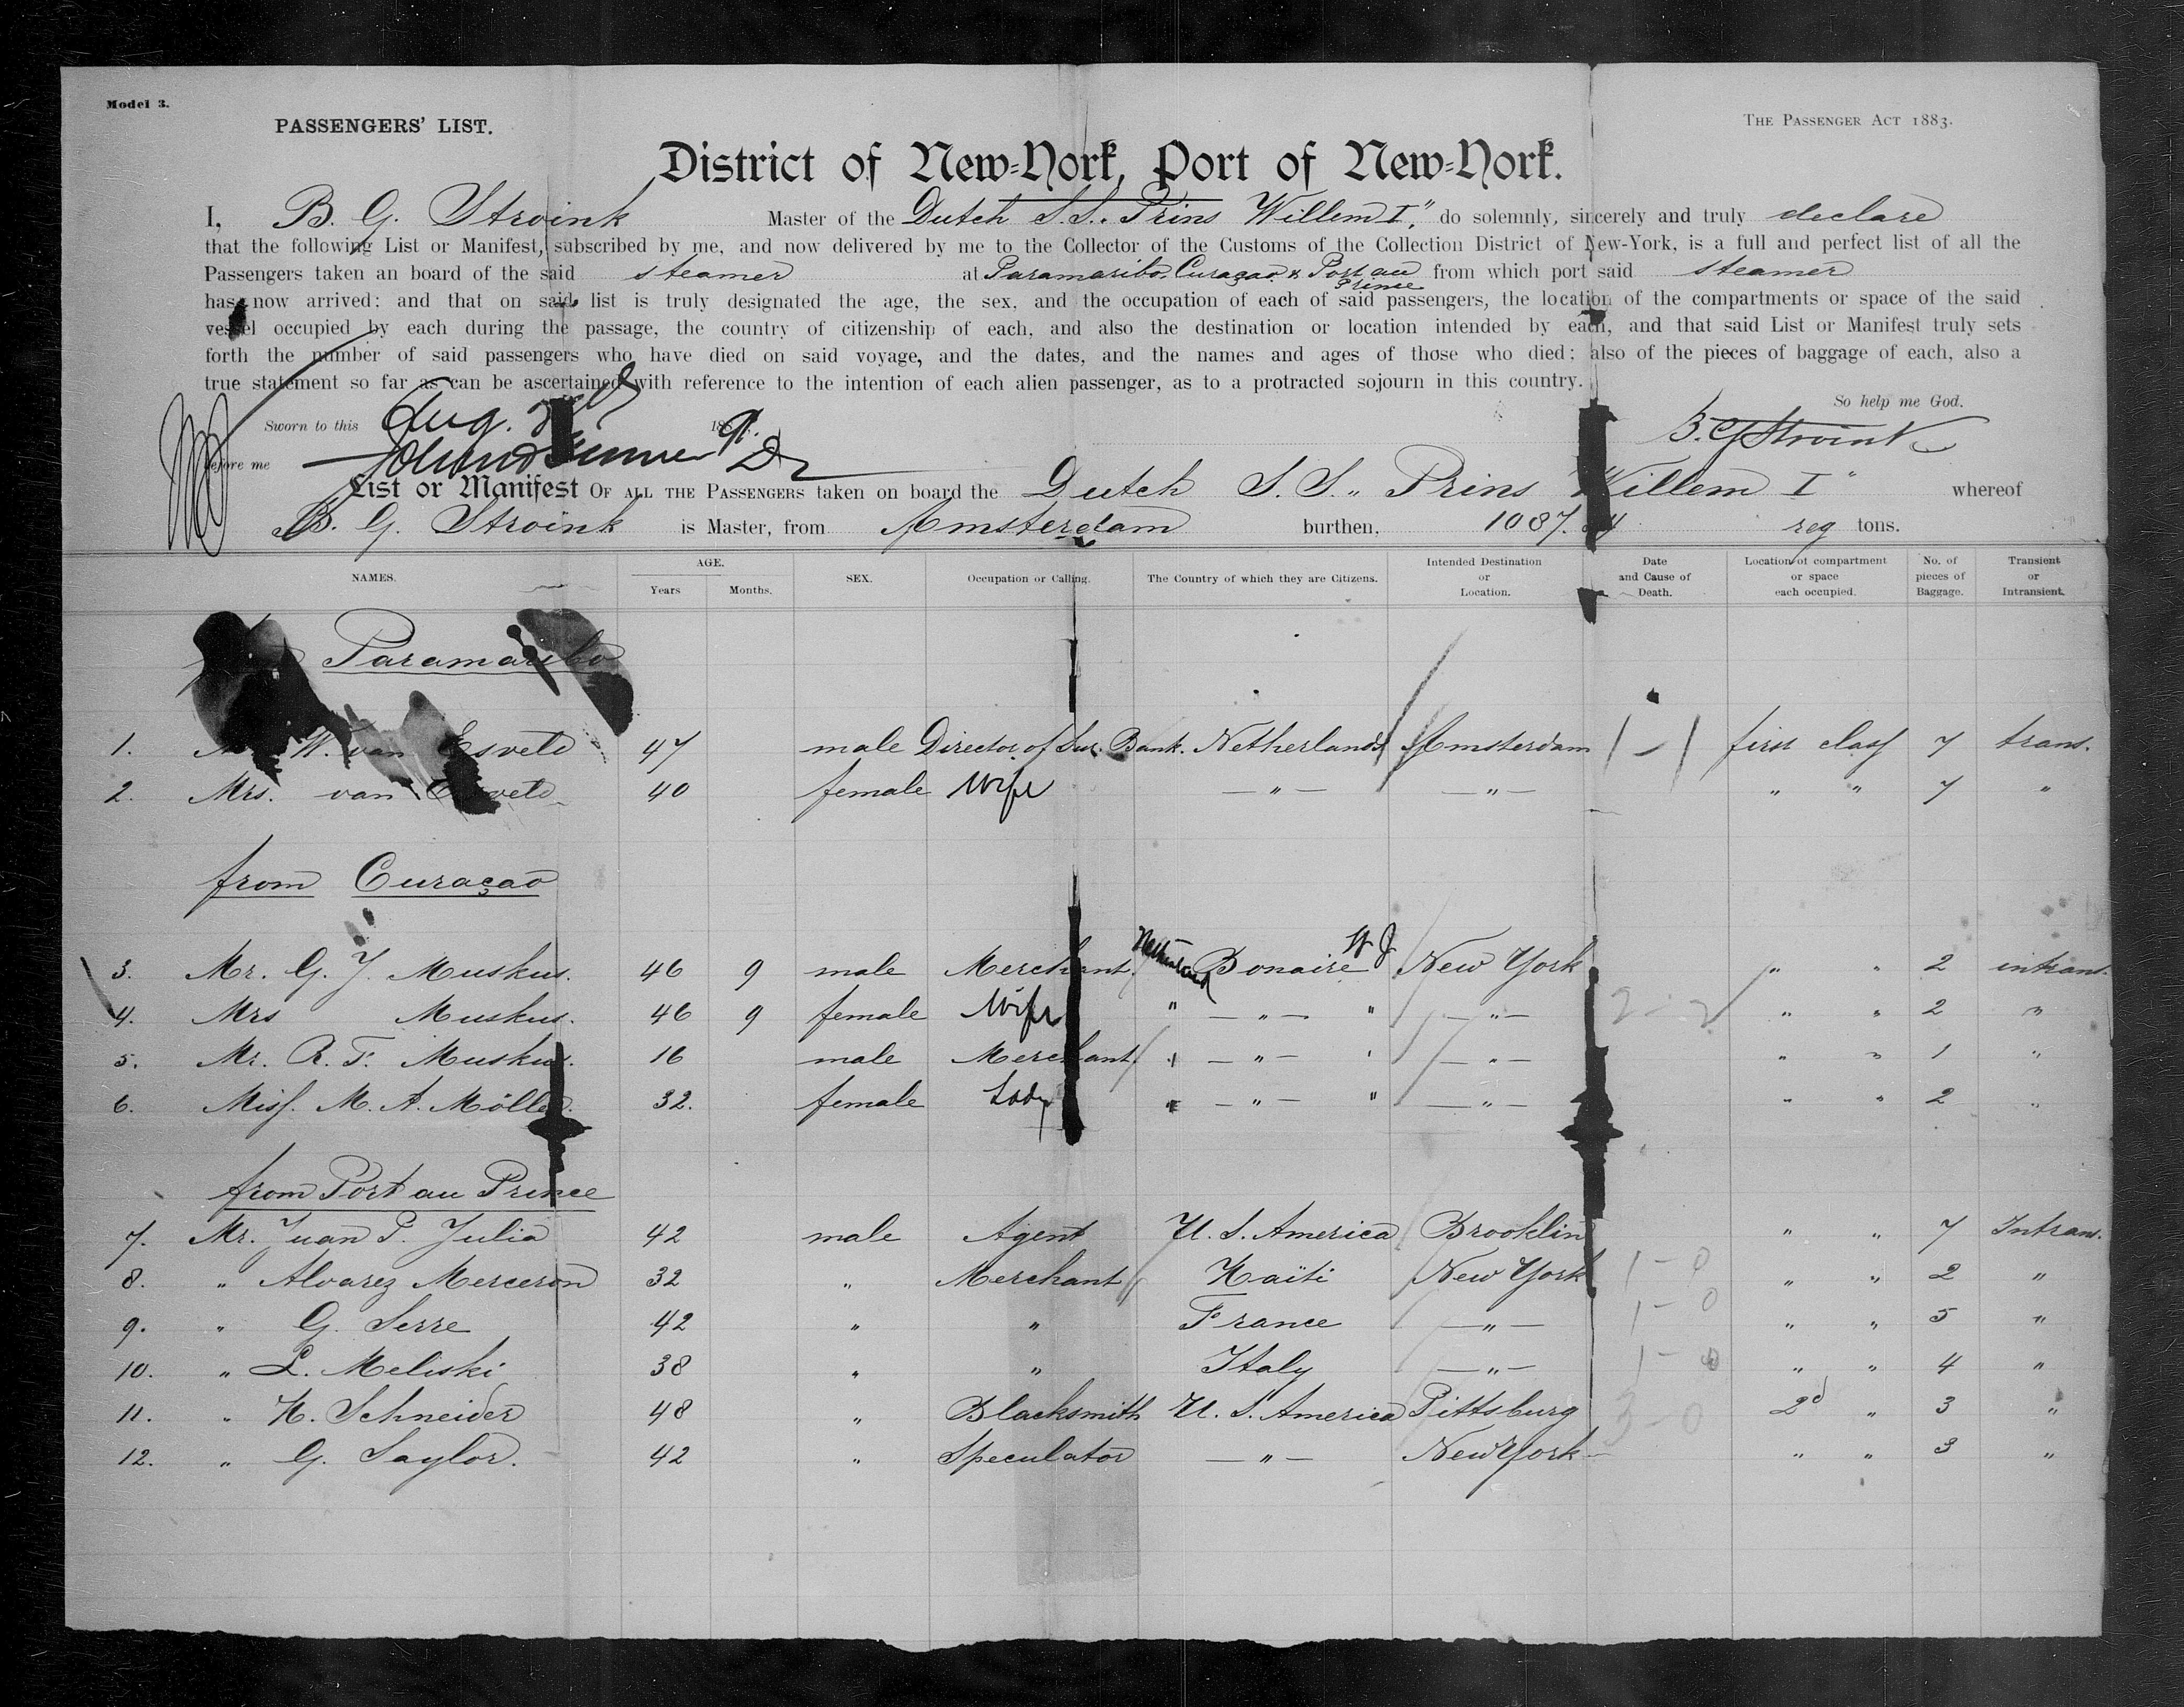 Model 3.
PASSENGERS' LIST.
THE PASSENGER ACT 1883.
District of New-York, Port of New-York.
I, B. G. Stroink Master of the Dutch S.S. "Prins Willem I", do solemnly, sincerely and truly declare
that the following List or Manifest, subscribed by me, and now delivered by me to the Collector of the Customs of the Collection District of New-York, is a full and perfect list of all the
Passengers taken an board of the said steamer at Paramaribo, Curaçao & Port au Prince from which port said steamer
has now arrived: and that on said list is truly designated the age, the sex, and the occupation of each of said passengers, the location of the compartments or space of the said
vessel occupied by each during the passage, the country of citizenship of each, and also the destination or location intended by each, and that said List or Manifest truly sets
forth the number of said passengers who have died on said voyage, and the dates, and the names and ages of those who died; also of the pieces of baggage of each, also a
true statement so far as can be ascertained with reference to the intention of each alien passenger, as to a protracted sojourn in this country.
So help me God.
Sworn to this Aug. 189
B. G. Stroink
before me
List or Manifest OF ALL THE PASSENGERS taken on board the Dutch S.S. "Prins Willem I" whereof
B. G. Stroink is Master, from Amsterdam burthen, 1087. reg tons.
NAMES. AGE. Years Months. SEX. Occupation or Calling. The Country of which they are Citizens. Intended Destination or Location. Date and Cause of Death. Location of compartment or space each occupied. No. of pieces of Baggage. Transient or Intransient.
Paramaribo
1. W. van Esveld 47 male Director of Sur. Bank. Netherlands Amsterdam 1-1 first class 7 trans.
2. Mrs. van Esveld 40 female Wife — " — — " — " " 7 "
from Curaçao
3. Mr. G. J. Muskus. 46 9 male Merchant Netherland Bonaire W J New York " " 2 intrans.
4. Mrs Muskus. 46 9 female Wife " — " — " — " — 2-2 " " 2 "
5. Mr. R. F. Muskus. 16 male Merchant " — " — " — " — " " 1 "
6. Miss. M. A. Möller. 32. female Lady " — " — " — " — " " 2 "
from Port au Prince
7. Mr. Juan P. Julia 42 male Agent U. S. America Brooklin " " 7 Intrans.
8. " Alvarez Merceron 32 " Merchant Haïti New York 1-0 " " 2 "
9. " G. Serre 42 " " France — " — 1-0 " " 5 "
10. " L. Meliski 38 " " Italy — " — 1-0 " " 4 "
11. " H. Schneider 48 " Blacksmith U. S. America Pittsburg 3-0 2d " 3 "
12. " G. Saylor. 42 " Speculator — " — New York " " 3 "